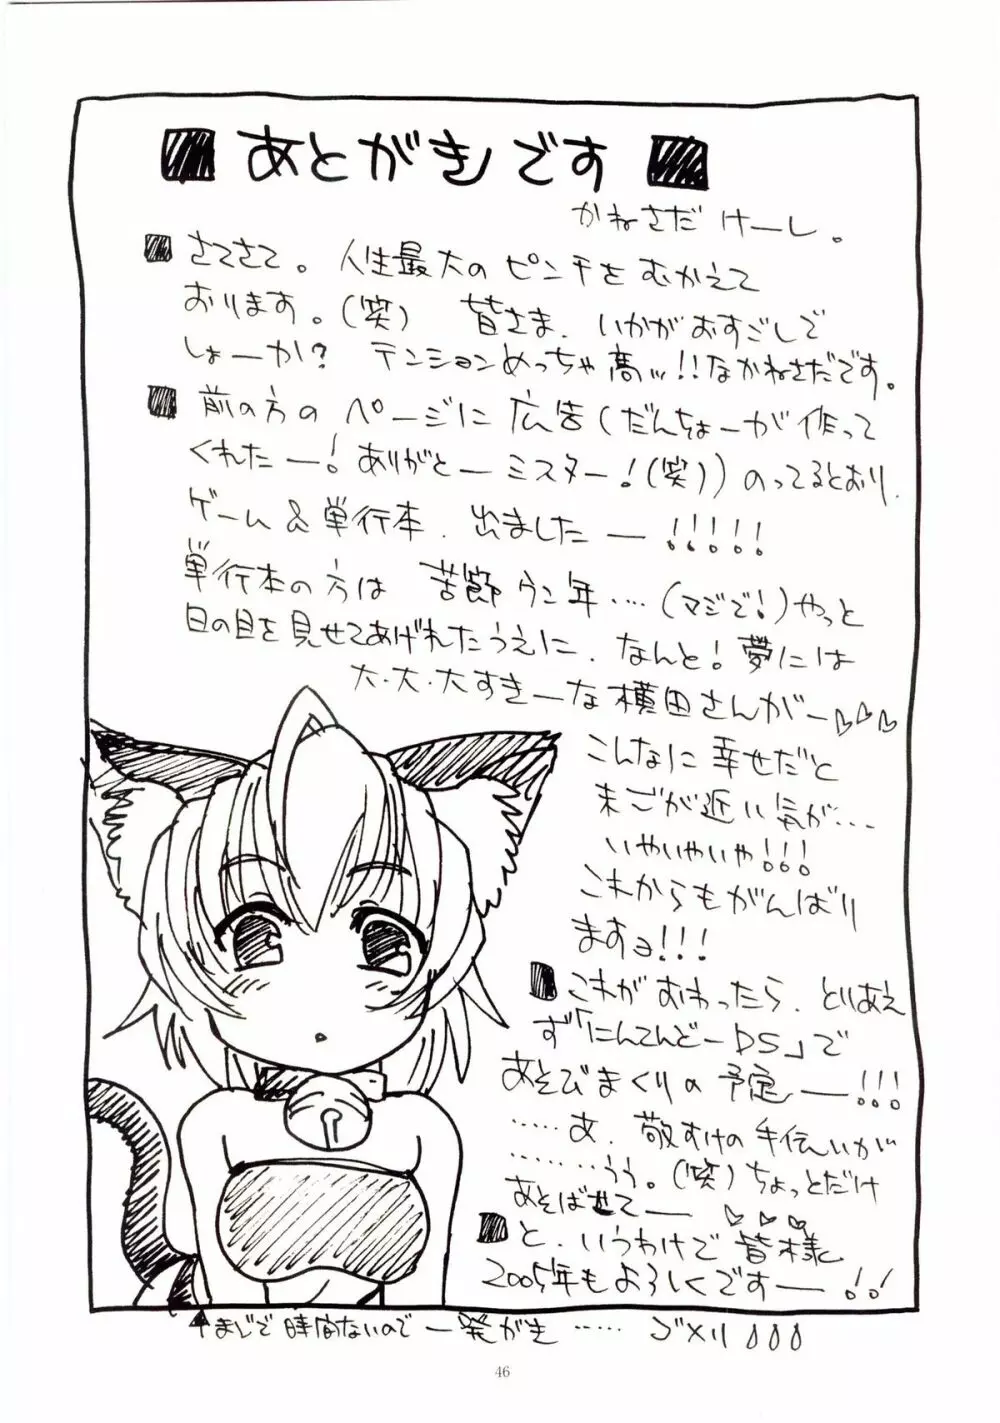 あとがきです
かねさだ けーし。
さてさて。人生最大のピンチをむかえて
おります。(笑) 皆さま、いかがおすごしで
しょーか? テンションめっちゃ高ッ!!なかねさだです。
前の方のページに広告(だんちょーが作って
くれたー!ありがとーミスター!(笑))のってるとおり、
ゲーム&単行本、出ましたー!!!!!
単行本の方は 苦節ウン年…(マジで!)やっと
日の目を見せてあげれたうえに、なんと!夢には
大・大・大すきーな横田さんがー♡♡♡
こんなに幸せだと
まごが近い気が…
いやいやいや!!!
これからもがんばり
ますヨ!!!
これがおわったら、とりあえ
ず「にんてんどーDS」で
あそびまくりの予定ー!!!
……あ、敬すけの手伝いが
………うう。(笑)ちょっとだけ
あそばせてー♡♡♡
と、いうわけで皆様
2005年もよろしくですー!!
↑まじで時間ないので一発がき…… ゴメリ
46